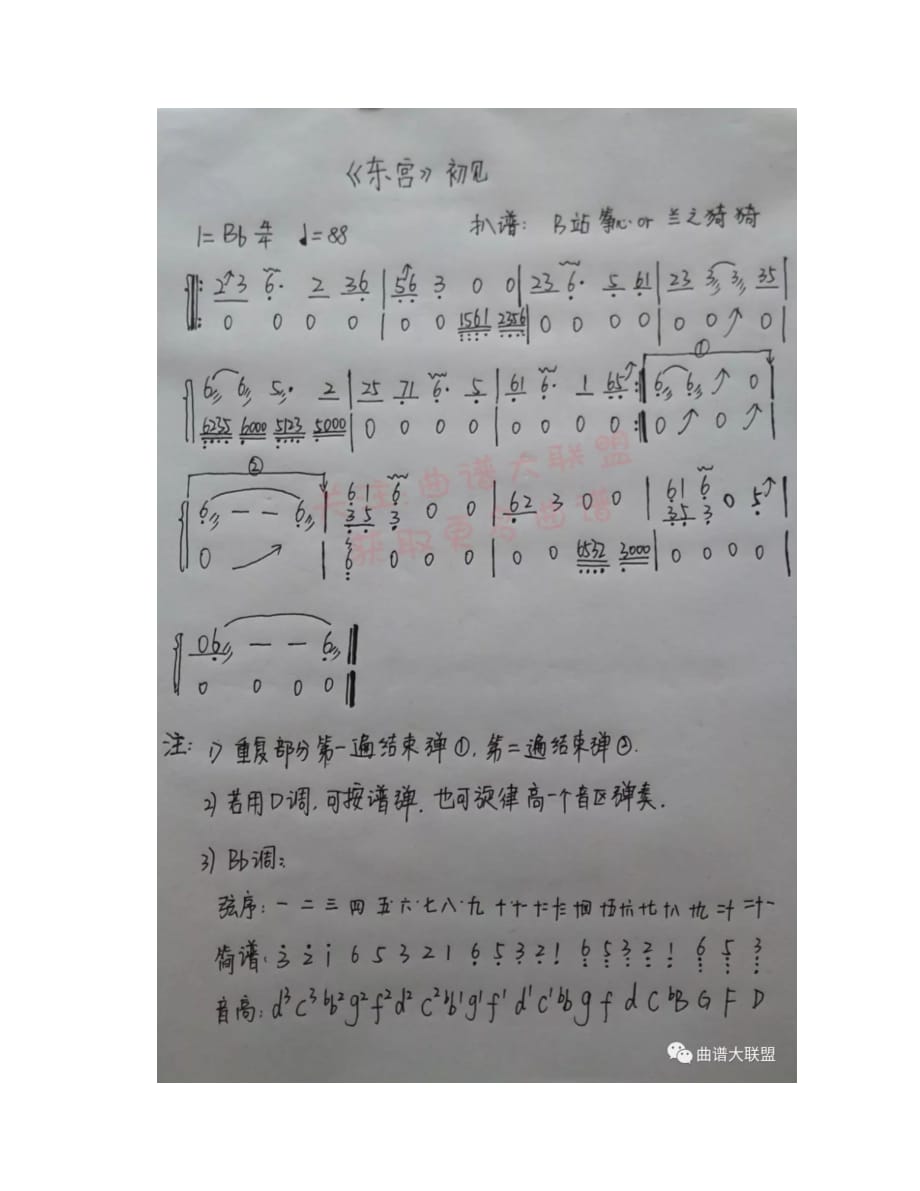 《东宫》初见
1=Bb 4/4 ♩=88 扒谱: B站 筝心 or 兰之猗猗
‖: 2↗3 6· 2 36 | 56 3 0 0 | 23 6· 5 61 | 23 3 3 35 |
‖: 0 0 0 0 | 0 0 1561 2356 | 0 0 0 0 | 0 0 ↗ 0 |
①
6 6 5· 2 | 25 71 6· 5 | 61 6· 1 65↗ :‖ 6 6 ↗ 0 |
6235 6000 5123 5000 | 0 0 0 0 | 0 0 0 0 :‖ 0 ↗ 0 ↗ |
②
6 — — 6 | 61 6 0 0 | 62 3 0 0 | 61 6 0 5↗ |
35 3 35 3
0 ↗ | 6 0 0 0 | 0 0 6532 3000 | 0 0 0 0 |
关注曲谱大联盟
获取更多曲谱
06 — — 6 ‖
0 0 0 0 ‖
注: 1) 重复部分第一遍结束弹①,第二遍结束弹②.
2) 若用D调,可按谱弹,也可旋律高一个音区弹奏.
3) Bb调:
弦序: 一 二 三 四 五 六 七 八 九 十 十一 十二 十三 十四 十五 十六 十七 十八 十九 二十 二十一
简谱: 3̇ 2̇ 1̇ 6 5 3 2 1 6 5 3 2 1 6 5 3 2 1 6 5 3
音高: d³ c³ bb² g² f² d² c² bb¹ g¹ f¹ d¹ c¹ bb g f d c bB G F D
曲谱大联盟